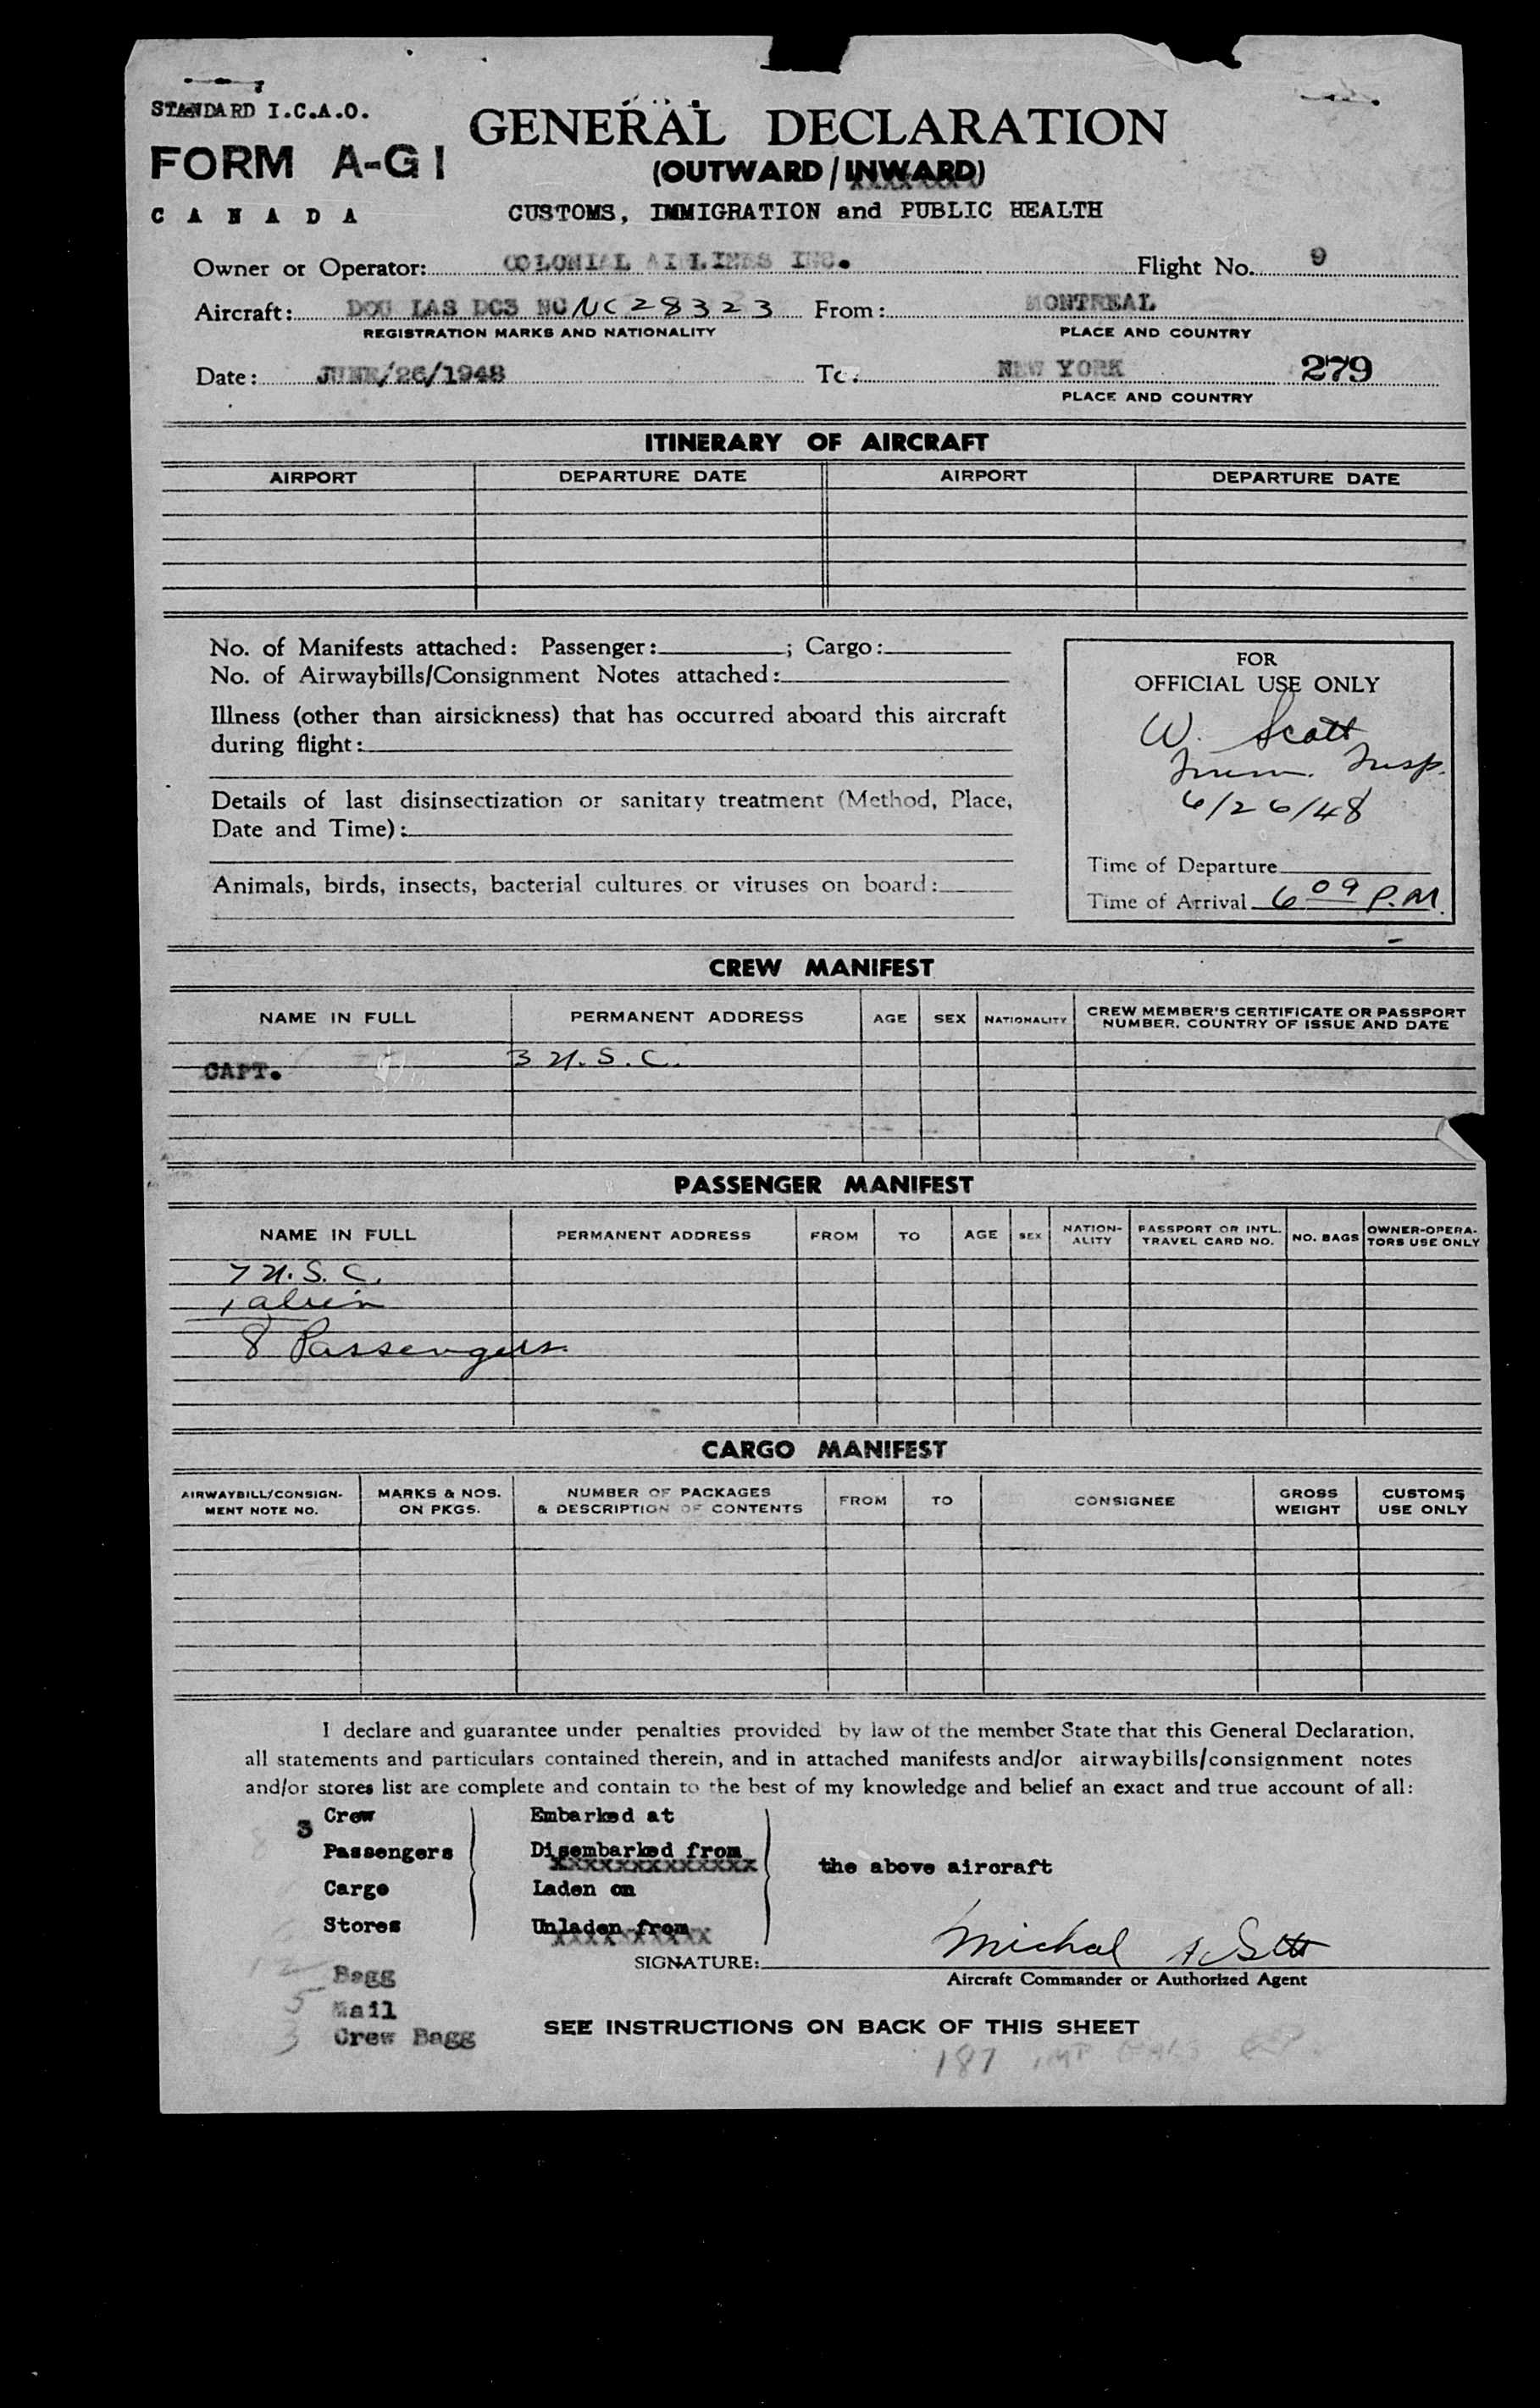 STANDARD I.C.A.O.
FORM A-G1
CANADA
GENERAL DECLARATION
(OUTWARD/INWARD)
CUSTOMS, IMMIGRATION and PUBLIC HEALTH
Owner or Operator: COLONIAL AIRLINES INC. Flight No. 9
Aircraft: DOUGLAS DC3 NC NC28323 From: MONTREAL
REGISTRATION MARKS AND NATIONALITY PLACE AND COUNTRY
Date: JUNE/26/1948 To: NEW YORK 279
PLACE AND COUNTRY
ITINERARY OF AIRCRAFT
AIRPORT DEPARTURE DATE AIRPORT DEPARTURE DATE
No. of Manifests attached: Passenger: ; Cargo:
No. of Airwaybills/Consignment Notes attached:
Illness (other than airsickness) that has occurred aboard this aircraft
during flight:
Details of last disinsectization or sanitary treatment (Method, Place,
Date and Time):
Animals, birds, insects, bacterial cultures or viruses on board:
FOR
OFFICIAL USE ONLY
W. Scott
Imm. Insp.
6/26/48
Time of Departure
Time of Arrival 6 09 P.M.
CREW MANIFEST
NAME IN FULL PERMANENT ADDRESS AGE SEX NATIONALITY CREW MEMBER'S CERTIFICATE OR PASSPORT NUMBER, COUNTRY OF ISSUE AND DATE
3 U.S.C.
CAPT.
PASSENGER MANIFEST
NAME IN FULL PERMANENT ADDRESS FROM TO AGE SEX NATION-ALITY PASSPORT OR INTL. TRAVEL CARD NO. NO. BAGS OWNER-OPERA-TORS USE ONLY
7 U.S.C.
1 alien
8 Passengers
CARGO MANIFEST
AIRWAYBILL/CONSIGN-MENT NOTE NO. MARKS & NOS. ON PKGS. NUMBER OF PACKAGES & DESCRIPTION OF CONTENTS FROM TO CONSIGNEE GROSS WEIGHT CUSTOMS USE ONLY
I declare and guarantee under penalties provided by law of the member State that this General Declaration,
all statements and particulars contained therein, and in attached manifests and/or airwaybills/consignment notes
and/or stores list are complete and contain to the best of my knowledge and belief an exact and true account of all:
3 Crew Embarked at
8 Passengers Disembarked from
the above aircraft
Cargo Laden on
Stores Unladen from
SIGNATURE: Michal
Aircraft Commander or Authorized Agent
12 Bagg
5 Mail
3 Crew Bagg
SEE INSTRUCTIONS ON BACK OF THIS SHEET
187